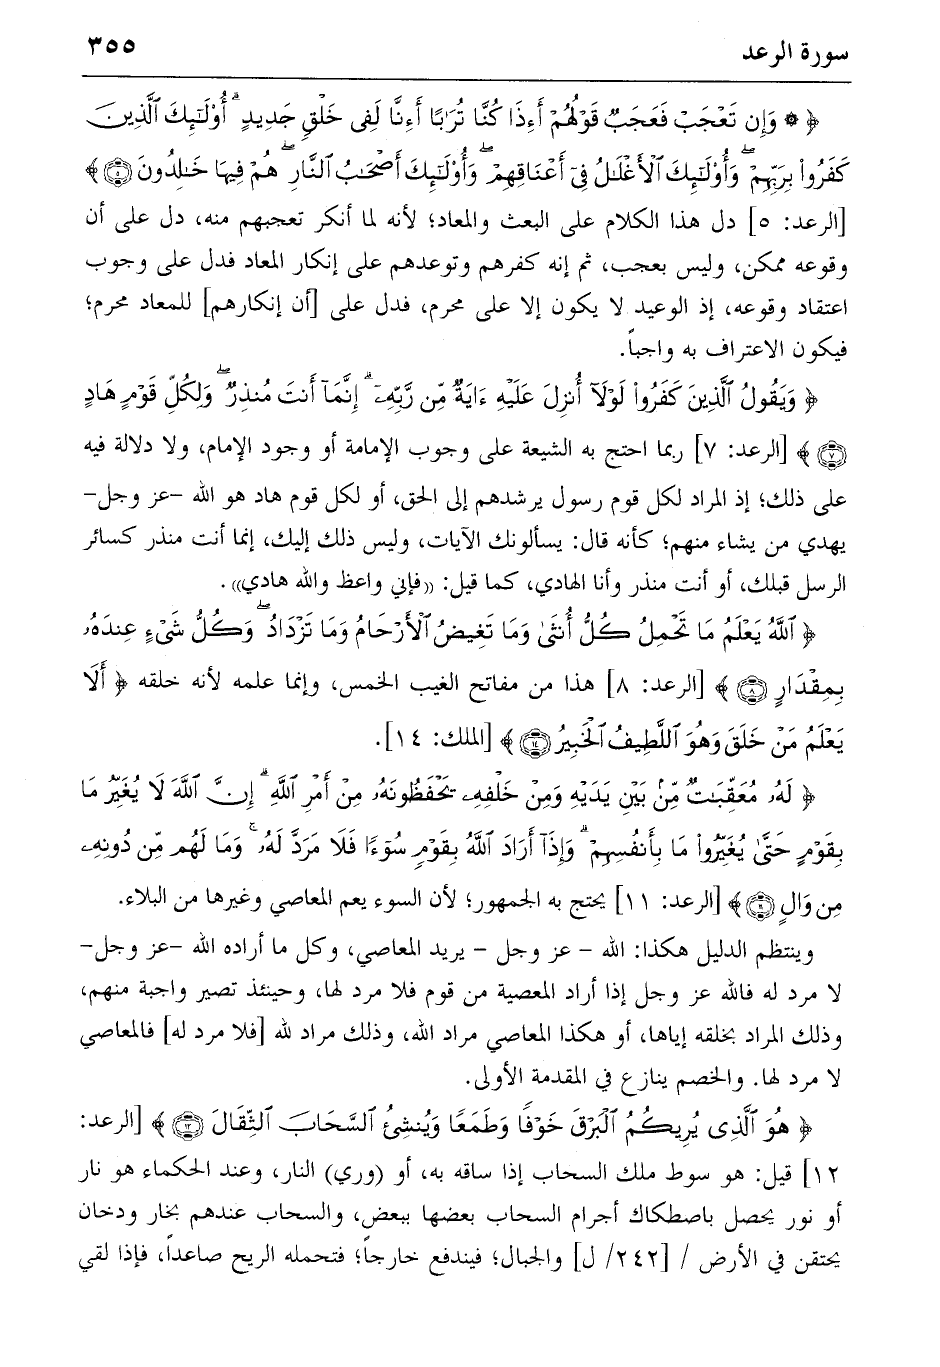 سورة الرعد ٣٥٥
﴿ ۞ وَإِن تَعْجَبْ فَعَجَبٌ قَوْلُهُمْ أَءِذَا كُنَّا تُرَٰبًا أَءِنَّا لَفِى خَلْقٍ جَدِيدٍ ۗ أُو۟لَـٰٓئِكَ ٱلَّذِينَ
كَفَرُوا۟ بِرَبِّهِمْ ۖ وَأُو۟لَـٰٓئِكَ ٱلْأَغْلَـٰلُ فِىٓ أَعْنَاقِهِمْ ۖ وَأُو۟لَـٰٓئِكَ أَصْحَـٰبُ ٱلنَّارِ ۖ هُمْ فِيهَا خَـٰلِدُونَ ۝٥ ﴾
[الرعد: ٥] دل هذا الكلام على البعث والمعاد؛ لأنه لما أنكر تعجبهم منه، دل على أن
وقوعه ممكن، وليس بعجب، ثم إنه كفرهم وتوعدهم على إنكار المعاد فدل على وجوب
اعتقاد وقوعه، إذ الوعيد لا يكون إلا على محرم، فدل على [أن إنكارهم] للمعاد محرم؛
فيكون الاعتراف به واجباً.
﴿ وَيَقُولُ ٱلَّذِينَ كَفَرُوا۟ لَوْلَآ أُنزِلَ عَلَيْهِ ءَايَةٌ مِّن رَّبِّهِۦٓ ۗ إِنَّمَآ أَنتَ مُنذِرٌ ۖ وَلِكُلِّ قَوْمٍ هَادٍ
۝٧ ﴾ [الرعد: ٧] ربما احتج به الشيعة على وجوب الإمامة أو وجود الإمام، ولا دلالة فيه
على ذلك؛ إذ المراد لكل قوم رسول يرشدهم إلى الحق، أو لكل قوم هاد هو الله -عز وجل-
يهدي من يشاء منهم؛ كأنه قال: يسألونك الآيات، وليس ذلك إليك، إنما أنت منذر كسائر
الرسل قبلك، أو أنت منذر وأنا الهادي، كما قيل: «فإني واعظ والله هادي».
﴿ ٱللَّهُ يَعْلَمُ مَا تَحْمِلُ كُلُّ أُنثَىٰ وَمَا تَغِيضُ ٱلْأَرْحَامُ وَمَا تَزْدَادُ ۖ وَكُلُّ شَىْءٍ عِندَهُۥ
بِمِقْدَارٍ ۝٨ ﴾ [الرعد: ٨] هذا من مفاتح الغيب الخمس، وإنما علمه لأنه خلقه ﴿ أَلَا
يَعْلَمُ مَنْ خَلَقَ وَهُوَ ٱللَّطِيفُ ٱلْخَبِيرُ ۝١٤ ﴾ [الملك: ١٤].
﴿ لَهُۥ مُعَقِّبَـٰتٌ مِّنۢ بَيْنِ يَدَيْهِ وَمِنْ خَلْفِهِۦ يَحْفَظُونَهُۥ مِنْ أَمْرِ ٱللَّهِ ۗ إِنَّ ٱللَّهَ لَا يُغَيِّرُ مَا
بِقَوْمٍ حَتَّىٰ يُغَيِّرُوا۟ مَا بِأَنفُسِهِمْ ۗ وَإِذَآ أَرَادَ ٱللَّهُ بِقَوْمٍ سُوٓءًا فَلَا مَرَدَّ لَهُۥ ۚ وَمَا لَهُم مِّن دُونِهِۦ
مِن وَالٍ ۝١١ ﴾ [الرعد: ١١] يحتج به الجمهور؛ لأن السوء يعم المعاصي وغيرها من البلاء.
وينتظم الدليل هكذا: الله - عز وجل - يريد المعاصي، وكل ما أراده الله -عز وجل-
لا مرد له فالله عز وجل إذا أراد المعصية من قوم فلا مرد لها، وحينئذ تصير واجبة منهم،
وذلك المراد بخلقه إياها، أو هكذا المعاصي مراد الله، وذلك مراد لله [فلا مرد له] فالمعاصي
لا مرد لها. والخصم ينازع في المقدمة الأولى.
﴿ هُوَ ٱلَّذِى يُرِيكُمُ ٱلْبَرْقَ خَوْفًا وَطَمَعًا وَيُنشِئُ ٱلسَّحَابَ ٱلثِّقَالَ ۝١٢ ﴾ [الرعد:
١٢] قيل: هو سوط ملك السحاب إذا ساقه به، أو (وري) النار، وعند الحكماء هو نار
أو نور يحصل باصطكاك أجرام السحاب بعضها ببعض، والسحاب عندهم بخار ودخان
يحتقن في الأرض / [٢٤٢/ ل] والجبال؛ فيندفع خارجاً؛ فتحمله الريح صاعداً، فإذا لقي